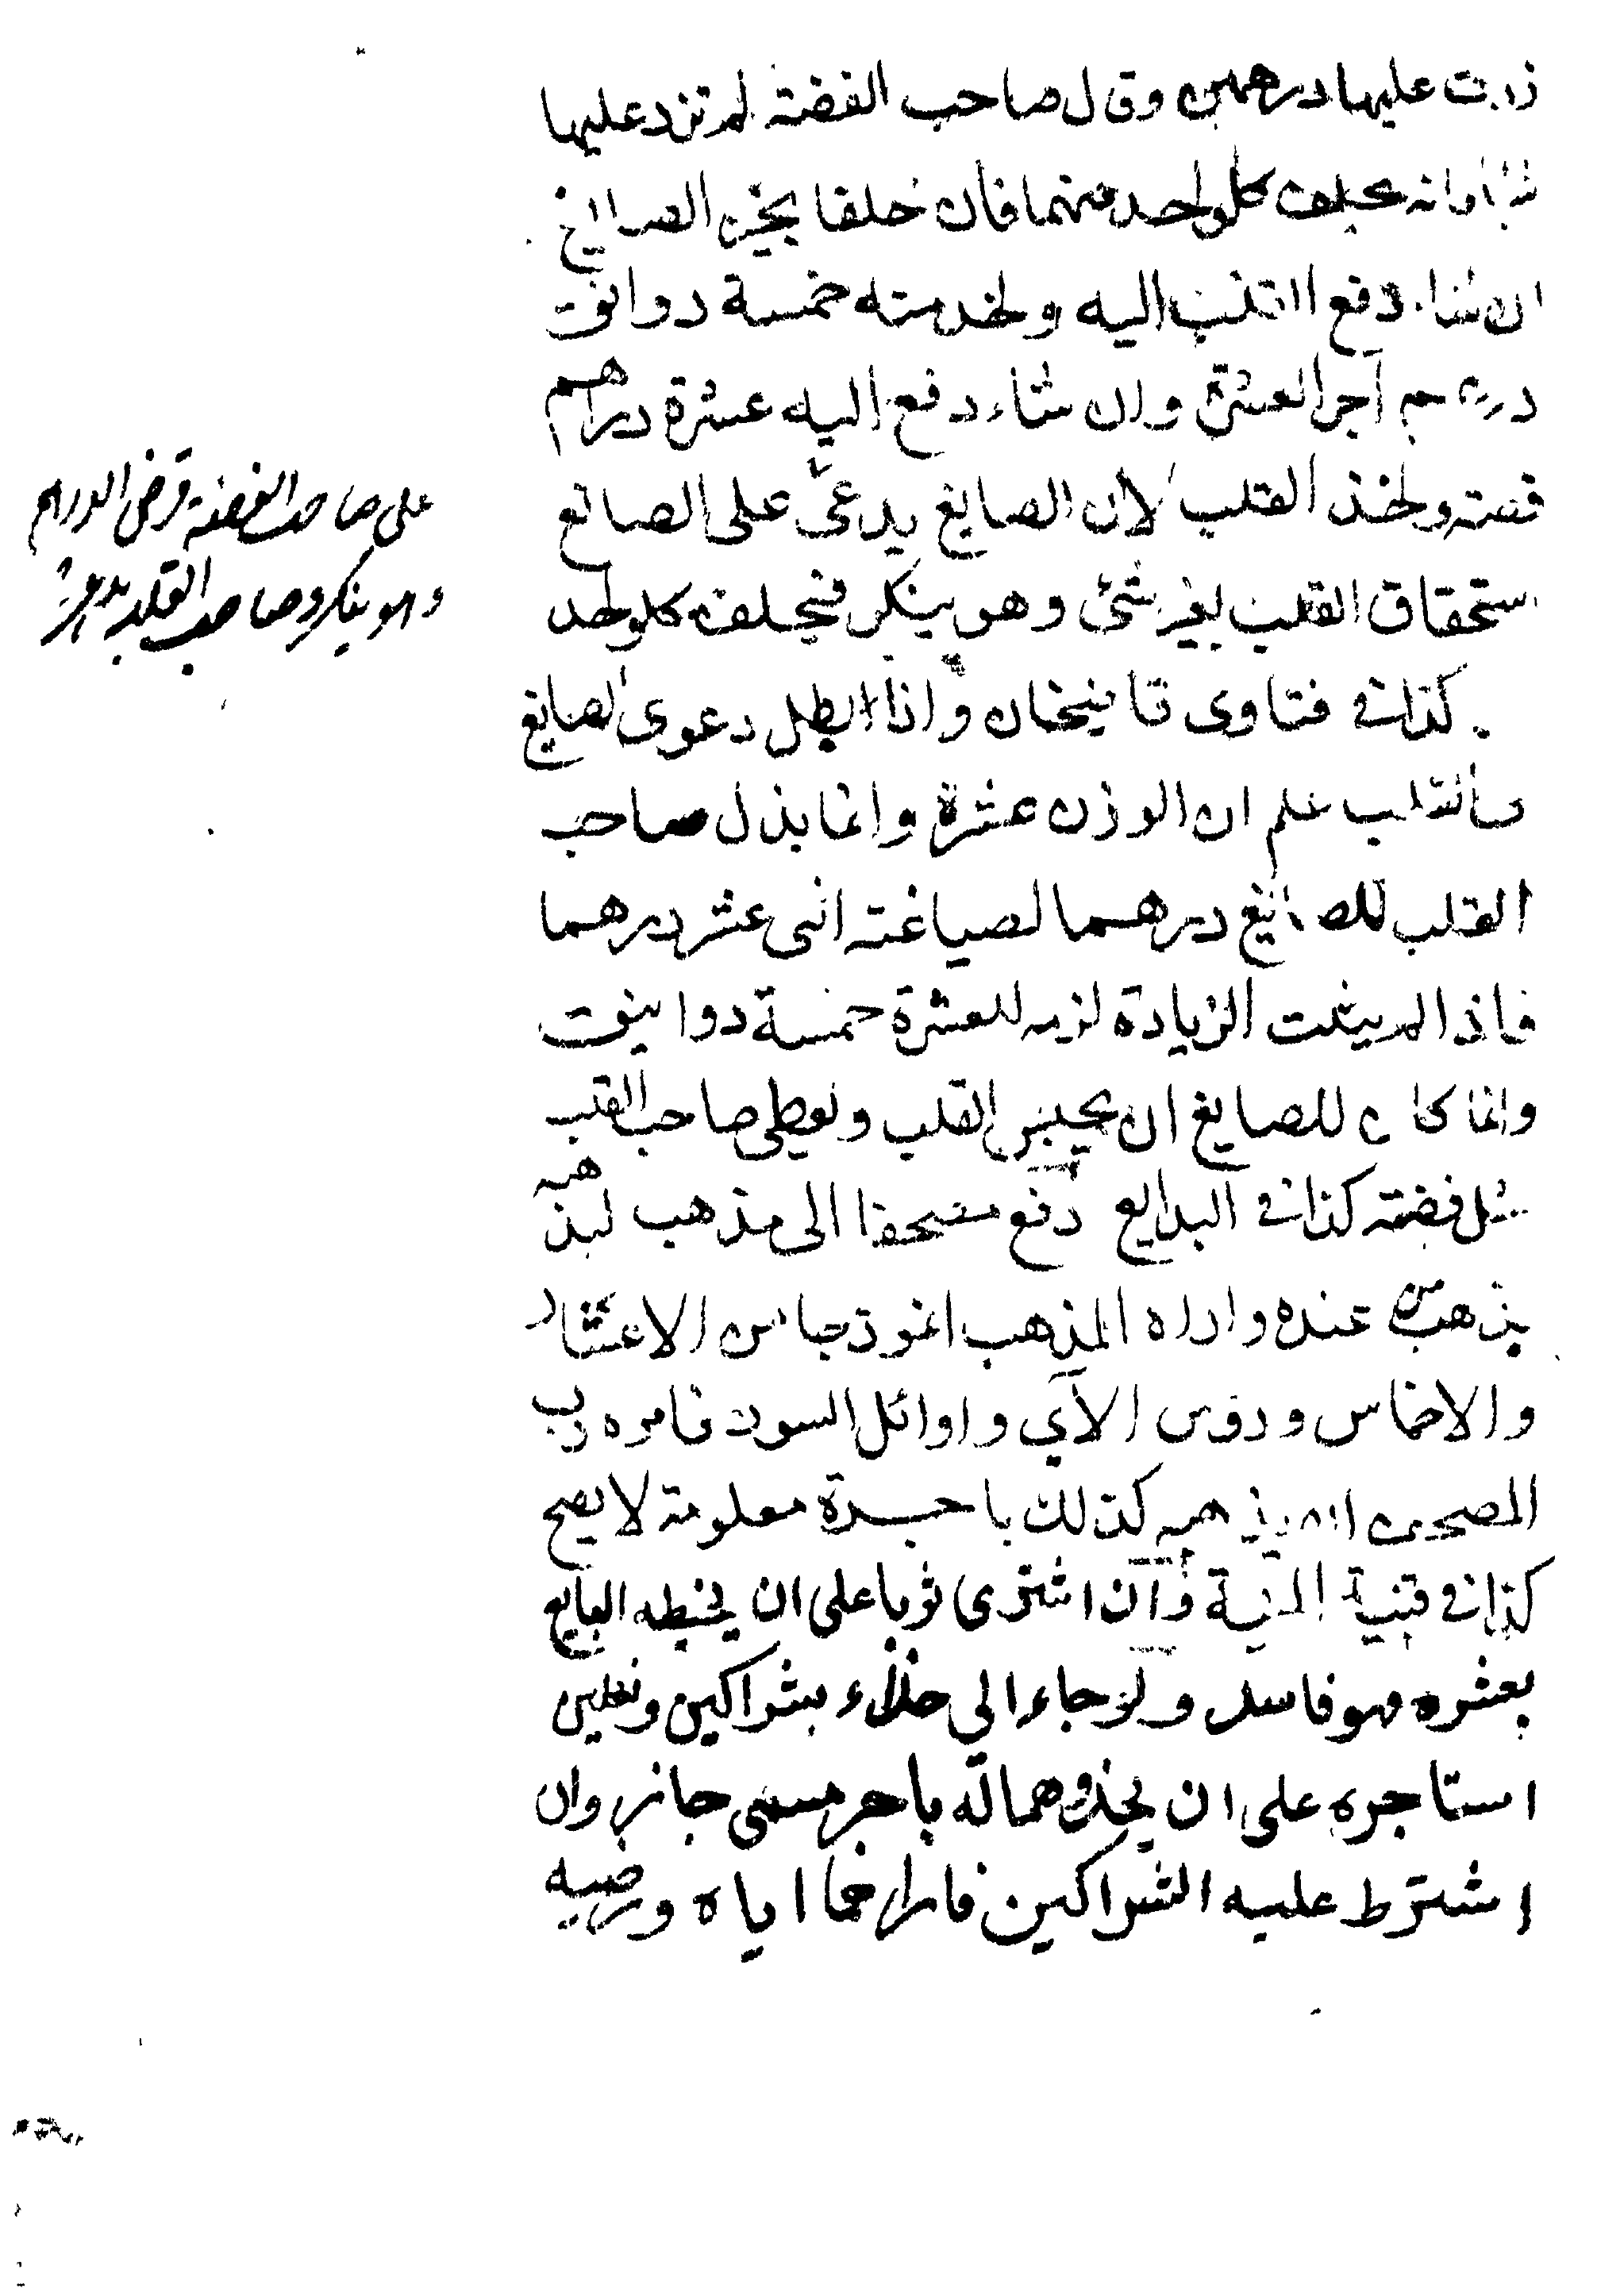 زدت عليها درهمين وقال صاحب الفضة لم تزد عليها
شيأ وانه يحلف كل واحد منهما فان حلفا يخير الصايغ
ان شاء دفع القلب اليه واخذ منه خمسة دوانق
درهم اجر العشرة وان شاء دفع اليه عشرة دراهم
فضته واخذ القلب لان الصايغ يدعى على الصانع
استحقاق القلب بغير شئ وهو ينكر فيحلف كل واحد
كذا فى فتاوى قاضيخان واذا ابطل دعوى الصايغ
القلب علم ان الوزن عشرة وانما بذل صاحب
القلب للصايغ درهما لصياغته اثنى عشر درهما
فاذا لم يثبت الزيادة لزمه للعشرة خمسة دوانيق
وانما كان للصايغ ان يحبس القلب ويعطى صاحب القلب
مثل فضته كذا فى البدايع دفع مصحفا الى مذهب ليذهبه
بذهب من عنده واراه المذهب انموذجا من الاعشار
والاخماس ورؤس الآي واوائل السور فامره رب
المصحف ان يذهبه كذلك باجرة معلومة لا يصح
كذا فى قنية المنية وان اشترى ثوبا على ان يخيطه البايع
بعشرة فهو فاسد ولو جاء الى حذاء بشراكين ونعلين
استاجره على ان يحذوهما له باجر مسمى جائز وان
اشترط عليه الشراكين فاراهما اياه ورضيه
على صاحب الفضة قرض الدراهم
وهو ينكر وصاحب القلب يدعى